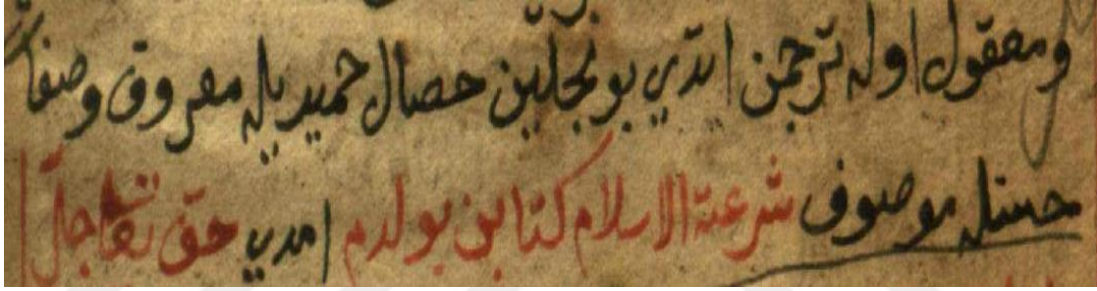 ومعقول اوله ترجمن ايتدي بو نجلين خصال حميديله معروق وصفات
حسنله موصوف شرعة الاسلام كتابن بولدم امدي حق تعا جل